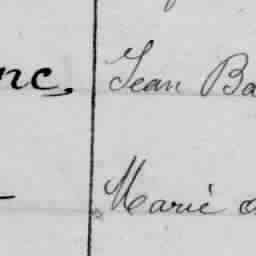 nc, Jean Ba
Marie